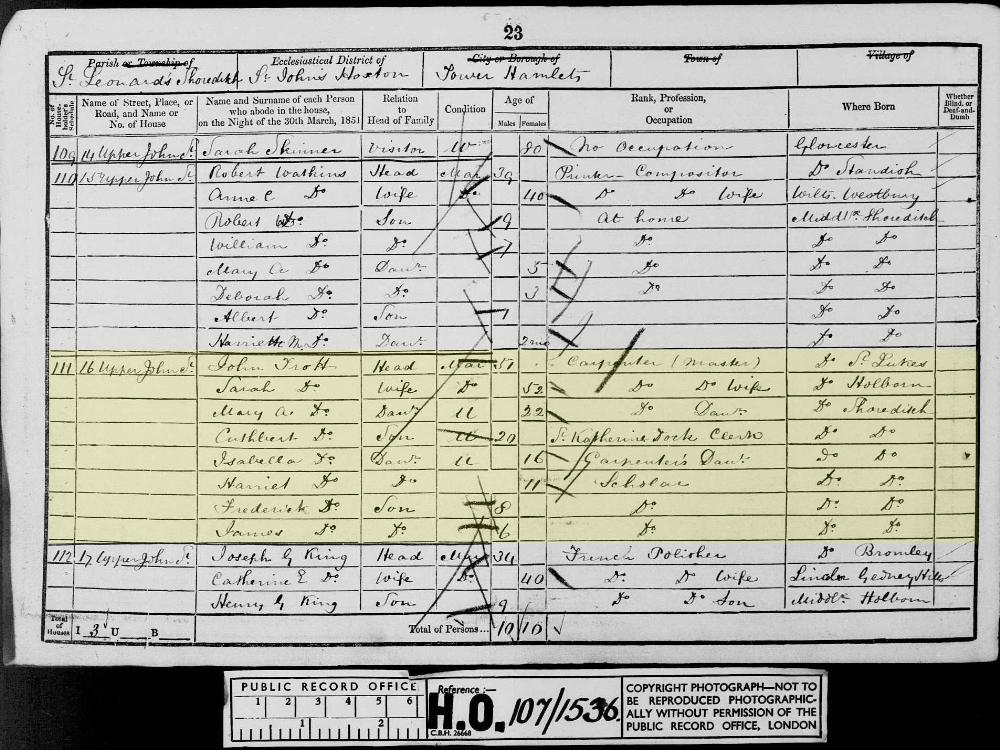 23
Parish or Township of Ecclesiastical District of City or Borough of Town of Village of
St. Leonards Shoreditch St. Johns Hoxton Tower Hamlets
No. of House-holder's Schedule Name of Street, Place, or Road, and Name or No. of House Name and Surname of each Person who abode in the house, on the Night of the 30th March, 1851 Relation to Head of Family Condition Age of Males Females Rank, Profession, or Occupation Where Born Whether Blind, or Deaf-and-Dumb
109 14 Upper John St. Sarah Skinner Visitor W 80 No Occupation Gloucester
110 15 Upper John St. Robert Watkins Head Mar 39 Printer - Compositor Do Standish
Anne C Do Wife Do 40 Do Do Wife Wilts. Westbury
Robert Do Son 9 At home Middlx Shoreditch
William Do Do 7 Do Do Do
Mary A Do Daur. 5 Do Do Do
Deborah Do Do 3 Do Do Do
Albert Do Son 1 Do Do
Harriett M. Do Daur. 2mo Do Do
111 16 Upper John St. John Trott Head Mar 51 Carpenter (Master) Do St. Lukes
Sarah Do Wife Do 52 Do Do Wife Do Holborn
Mary A. Do Daur. U 22 Do Daur. Do Shoreditch
Cuthbert Do Son U 20 St. Katherine Dock Clerk Do Do
Isabella Do Daur. U 16 Carpenter's Daur. Do Do
Harriet Do Do 11 Scholar Do Do
Frederick Do Son 8 Do Do Do
James Do Do 6 Do Do Do
112 17 Upper John St. Joseph G King Head Mar 34 French Polisher Do Bromley
Catherine E Do Wife Do 40 Do Do Wife Lincln Gedney Hill
Henry G King Son 9 Do Do Son Middlx. Holborn
Total of Houses I 3 U B Total of Persons... 10 10
PUBLIC RECORD OFFICE
1 2 3 4 5 6
1 2
Reference :—
H.O. 107/1536
C.B.H. 26668
COPYRIGHT PHOTOGRAPH—NOT TO
BE REPRODUCED PHOTOGRAPHIC-
ALLY WITHOUT PERMISSION OF THE
PUBLIC RECORD OFFICE, LONDON